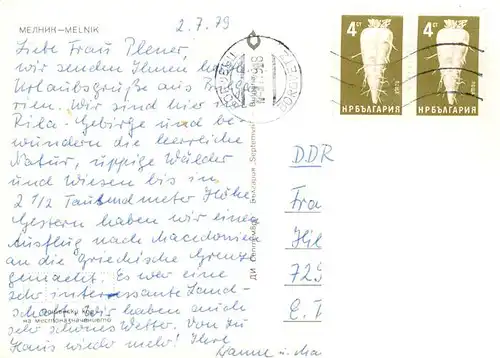 МЕЛНИК—MELNIK
2.7.79
Liebe Frau Plener,
wir senden Ihnen
Urlaubsgrüße aus
rien. Wir sind hier
Rila-Gebirge und be-
wundern die herrliche
Natur, üppige Wälder
und Wiesen bis in
2 1/2 Tausend meter Höhe.
Gestern haben wir einen
Ausflug nach Macedonien
an die Griechische Grenze
gemacht. Es war eine
sehr interessante Land-
schaft. Wir haben auch
sehr schönes Wetter. Von zu
Haus wieder mehr! Ihre
Hanne u. Ma
на местоназначението
ДИ „Септември" България „Septemvri"
4 СТ
НР БЪЛГАРИЯ
4 СТ
НР БЪЛГАРИЯ
DDR
Fra
Hil
729